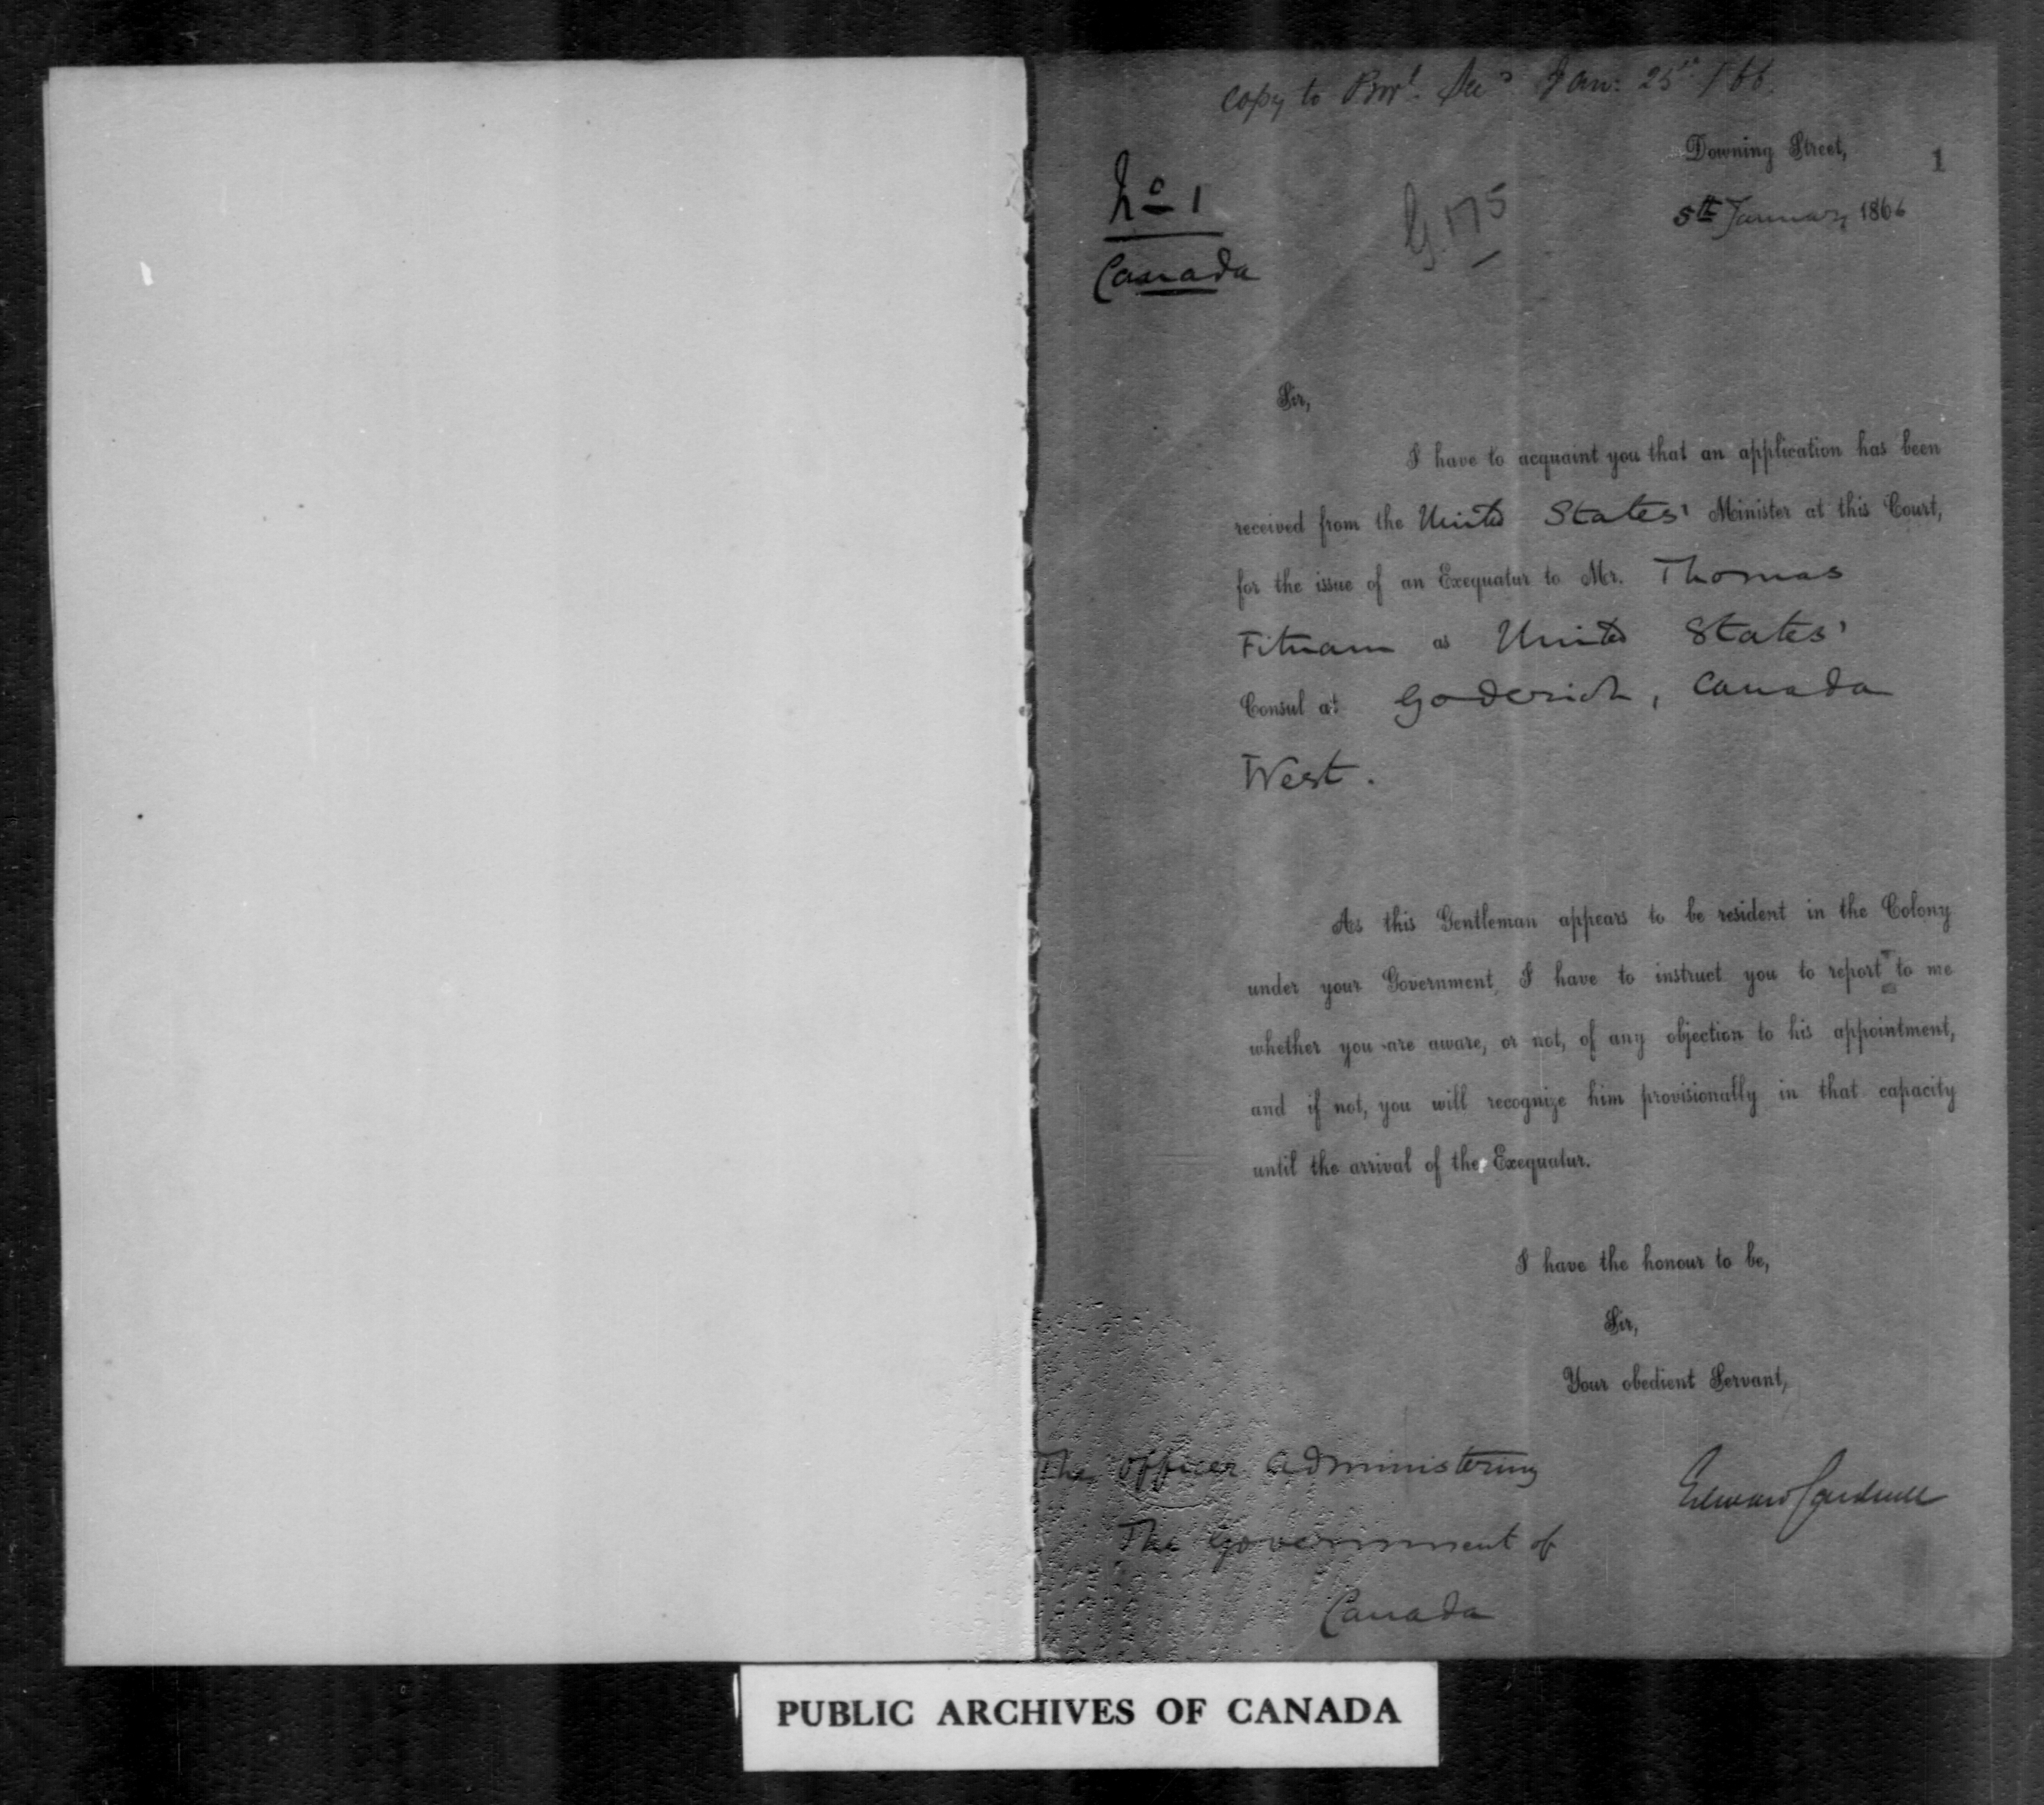 Copy to Provl. Secy. Jan: 25th /66.
Downing Street,
1
No 1
G. 175
5th January 1866
Canada
Sir,
I have to acquaint you that an application has been
received from the United States' Minister at this Court,
for the issue of an Exequatur to Mr. Thomas
Fitnam as United States'
Consul at Goderich, Canada
West.
As this Gentleman appears to be resident in the Colony
under your Government, I have to instruct you to report to me
whether you are aware, or not, of any objection to his appointment,
and if not, you will recognize him provisionally in that capacity
until the arrival of the Exequatur.
I have the honour to be,
Sir,
Your obedient Servant,
Edward Cardwell
The Officer Administering
The Government of
Canada
PUBLIC ARCHIVES OF CANADA